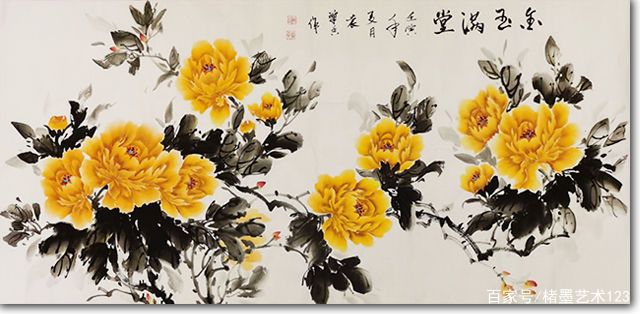 金玉满堂
壬寅
年
夏月
袁
作
百家号/楮墨艺术123